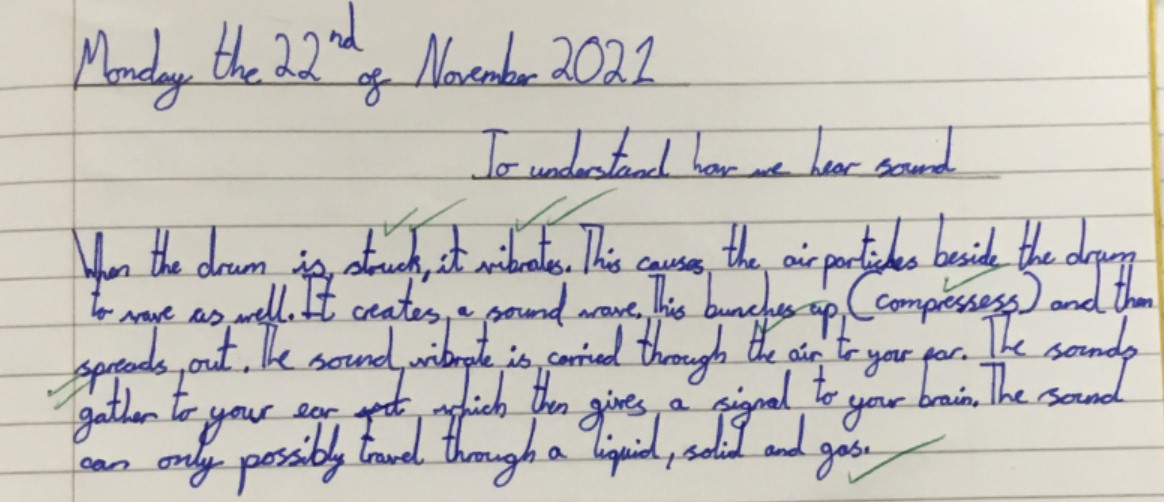 Monday the 22nd of November 2021
To understand how we hear sound
When the drum is struck, it vibrates. This causes the air particles beside the drum
to wave as well. It creates a sound wave. This bunches up (compressess) and then
spreads out. The sound vibrate is carried through the air to your ear. The sounds
gather to your ear which then gives a signal to your brain. The sound
can only possibly travel through a liquid, solid and gas.